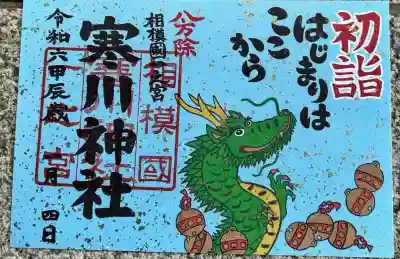 初詣
はじまりは
ここ
から
八方除
相模國一之宮
相模國
寒川神社
令和六甲辰歳
一月 四日